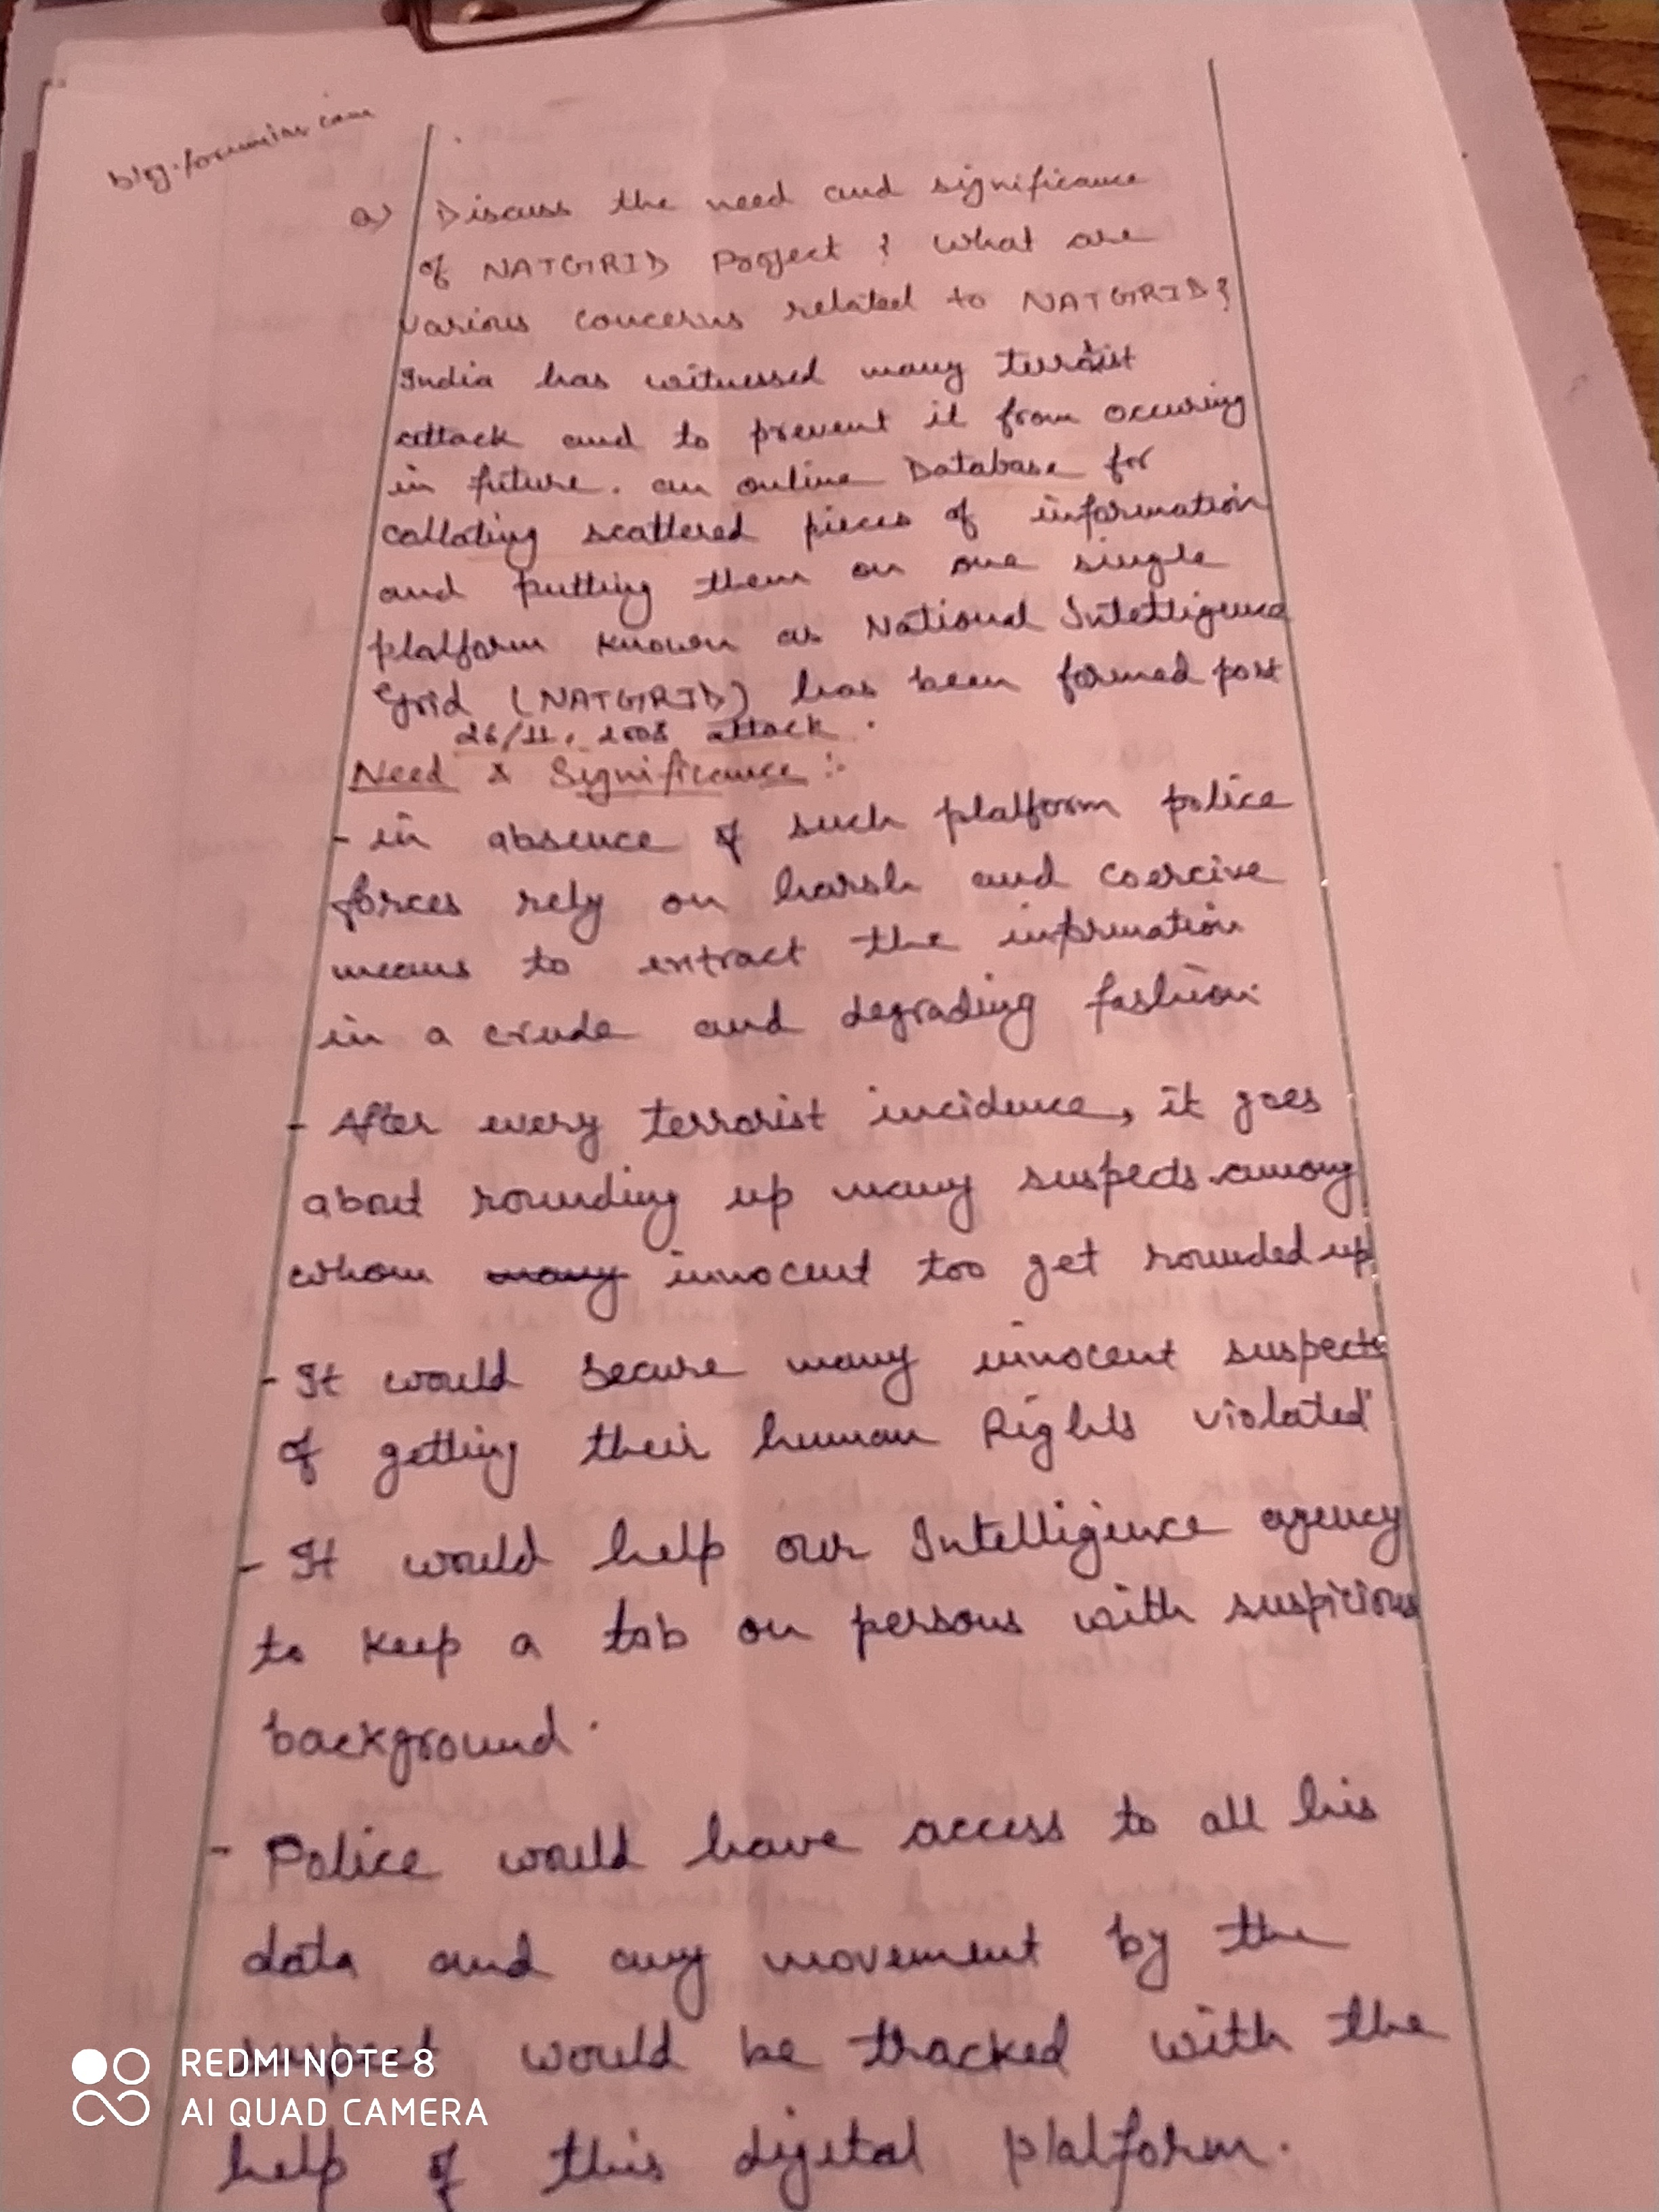 blog.forumias.com
a) Discuss the need and significance
of NATGRID Project ? What are
various concerns related to NATGRID?
India has witnessed many terroist
attack and to prevent it from occuring
in future. an online Database for
collating scattered pieces of information
and putting them on one single
platform known as National Intelligence
Grid (NATGRID) has been formed post
26/11, 2008 attack.
Need & Significance :-
- in absence of such platform police
forces rely on harsh and coercive
means to extract the information
in a crude and degrading fashion.
- After every terrorist incidence, it goes
about rounding up many suspects among
whom many innocent too get rounded up
- It would secure many innocent suspects
of getting their human Rights violated
- It would help our Intelligence agency
to keep a tab on persons with suspicious
background.
- Police would have access to all his
data and any movement by the
would be tracked with the
help of this digital platform.
REDMI NOTE 8
AI QUAD CAMERA